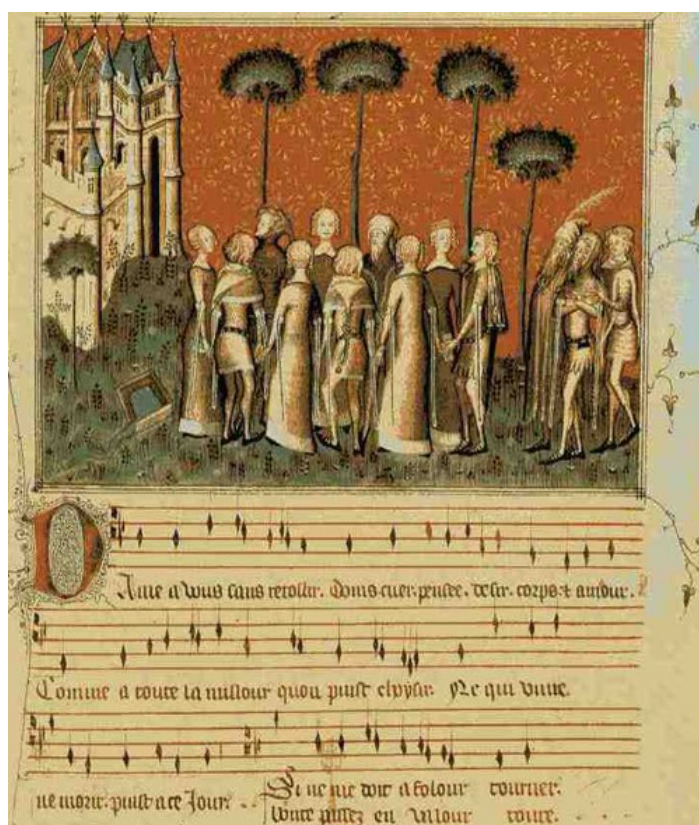 DAme a vous sans retollir. Doins cuer. pensee. desir. corps. & amour.
Comme a toute la millour quon puist choysir. Ne qui viure.
ne morir. puist a ce Jour.
Si ne me doit a folour tourner.
en valour toute.